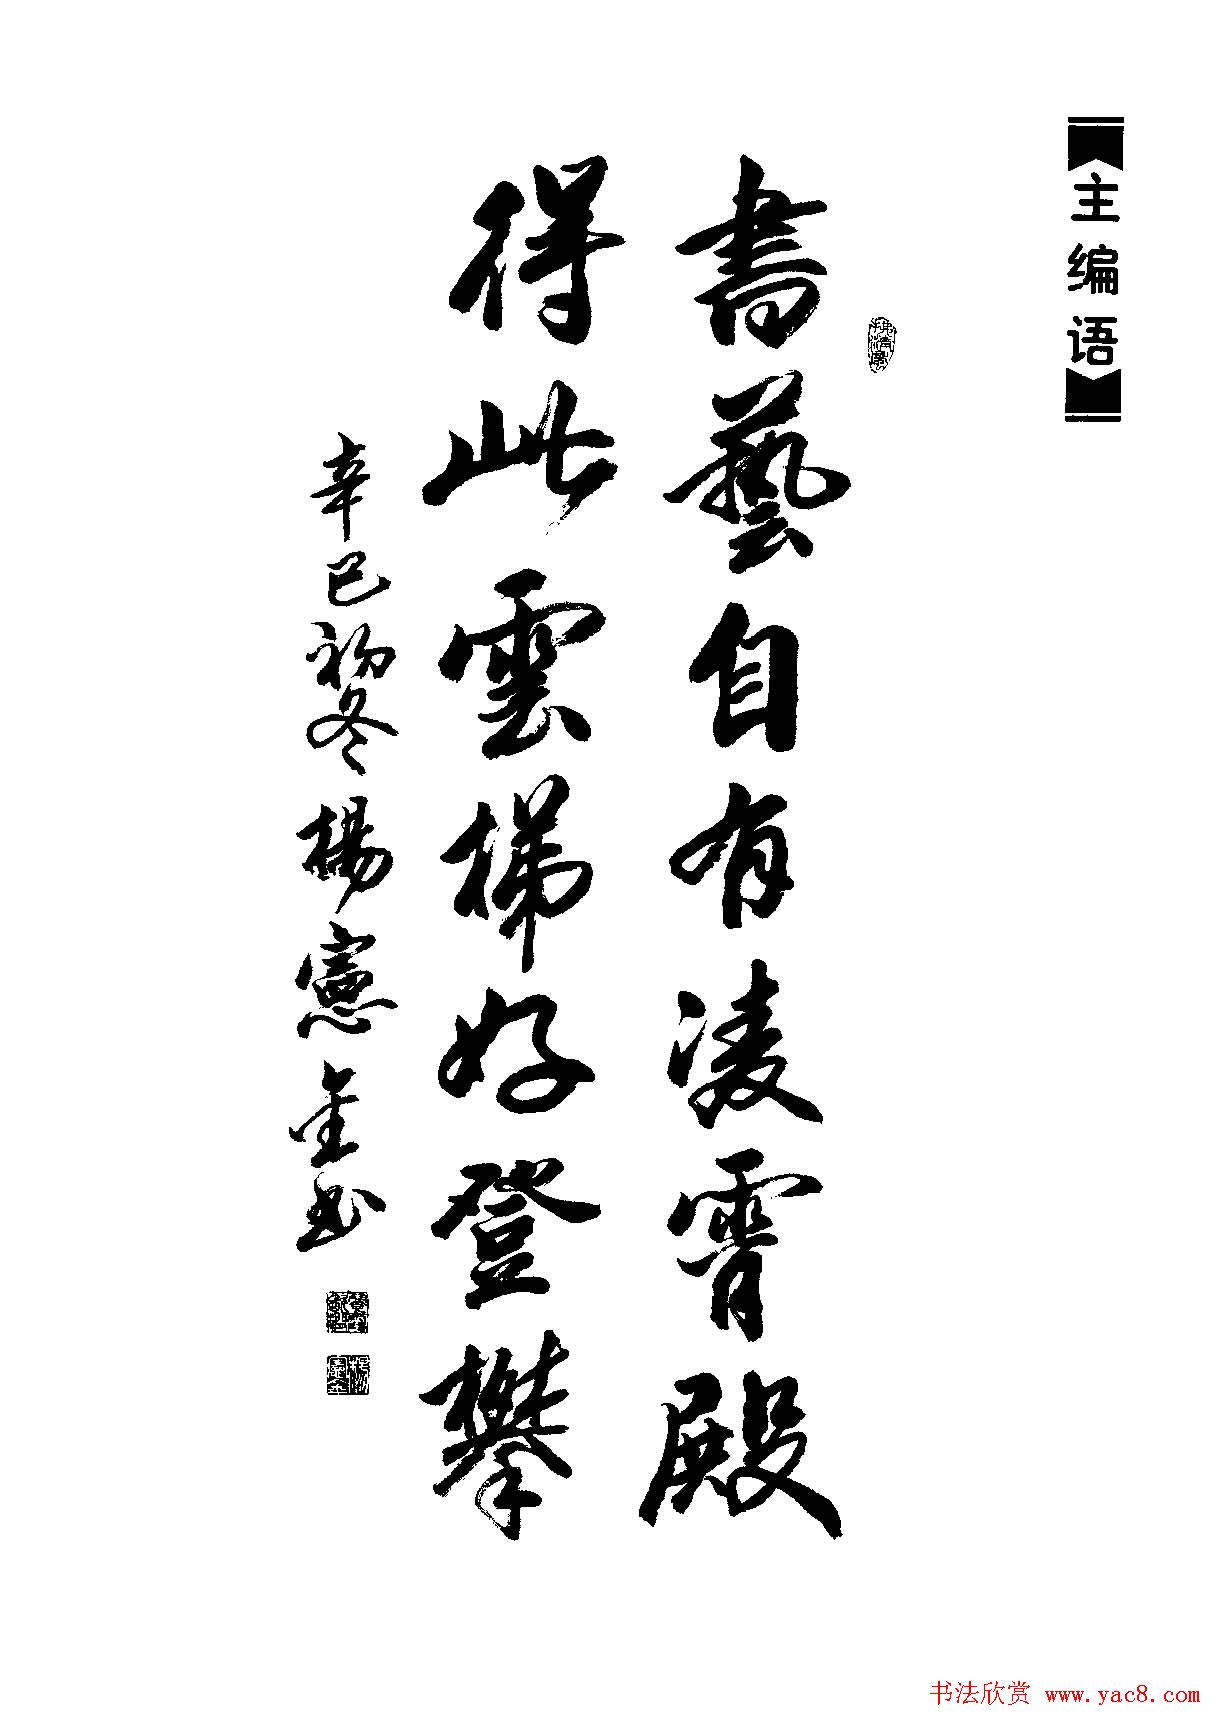 主编语
書藝自有凌霄殿
得此雲梯好登攀
辛巳初冬楊憲金书
书法欣赏 www.yac8.com